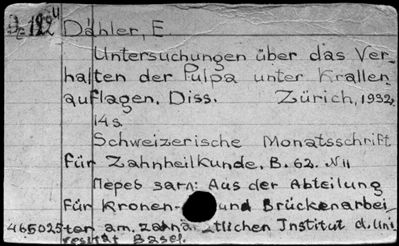 Dähler, E.
Untersuchungen über das Ver-
halten der Pulpa unter Krallen
auflagen. Diss. Zürich, 1932.
14 s.
Schweizerische Monatsschrift
für Zahnheilkunde. B. 62. N 11
Переб загл: Aus der Abteilung
für Kronen- und Brückenarbei
465025 ten am. zahnä ztlichen Institut d. Uni
versität Basel.